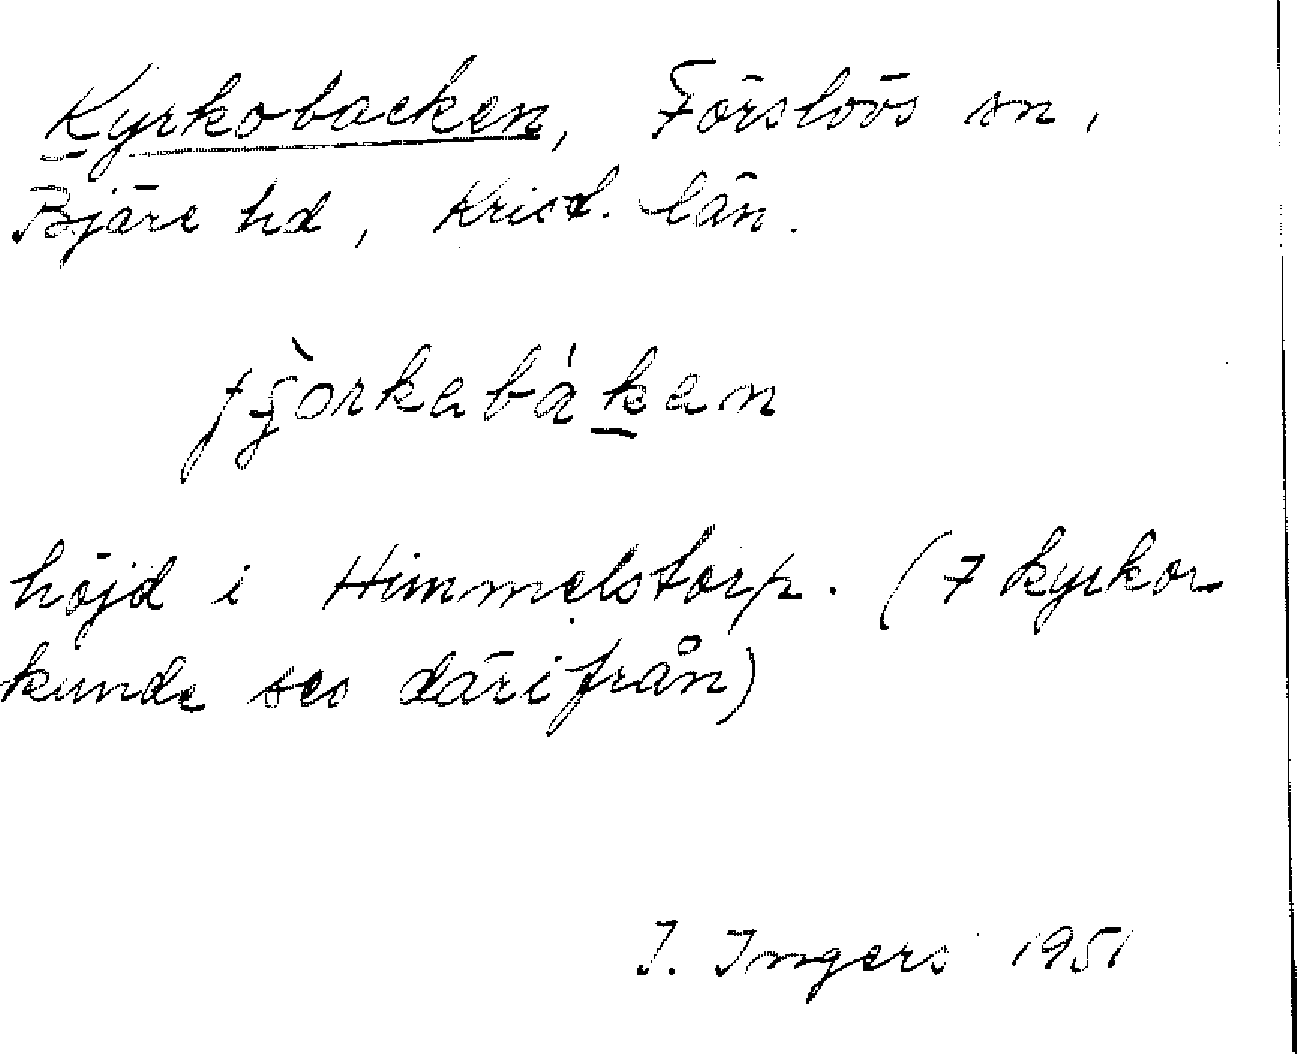 Kyrkobacken, Förslövs sn,
Bjäre hd, Krist. län.
höjd i Himmelstorp. (7 kyrkor
kunde ses därifrån)
I. Ingers 1951